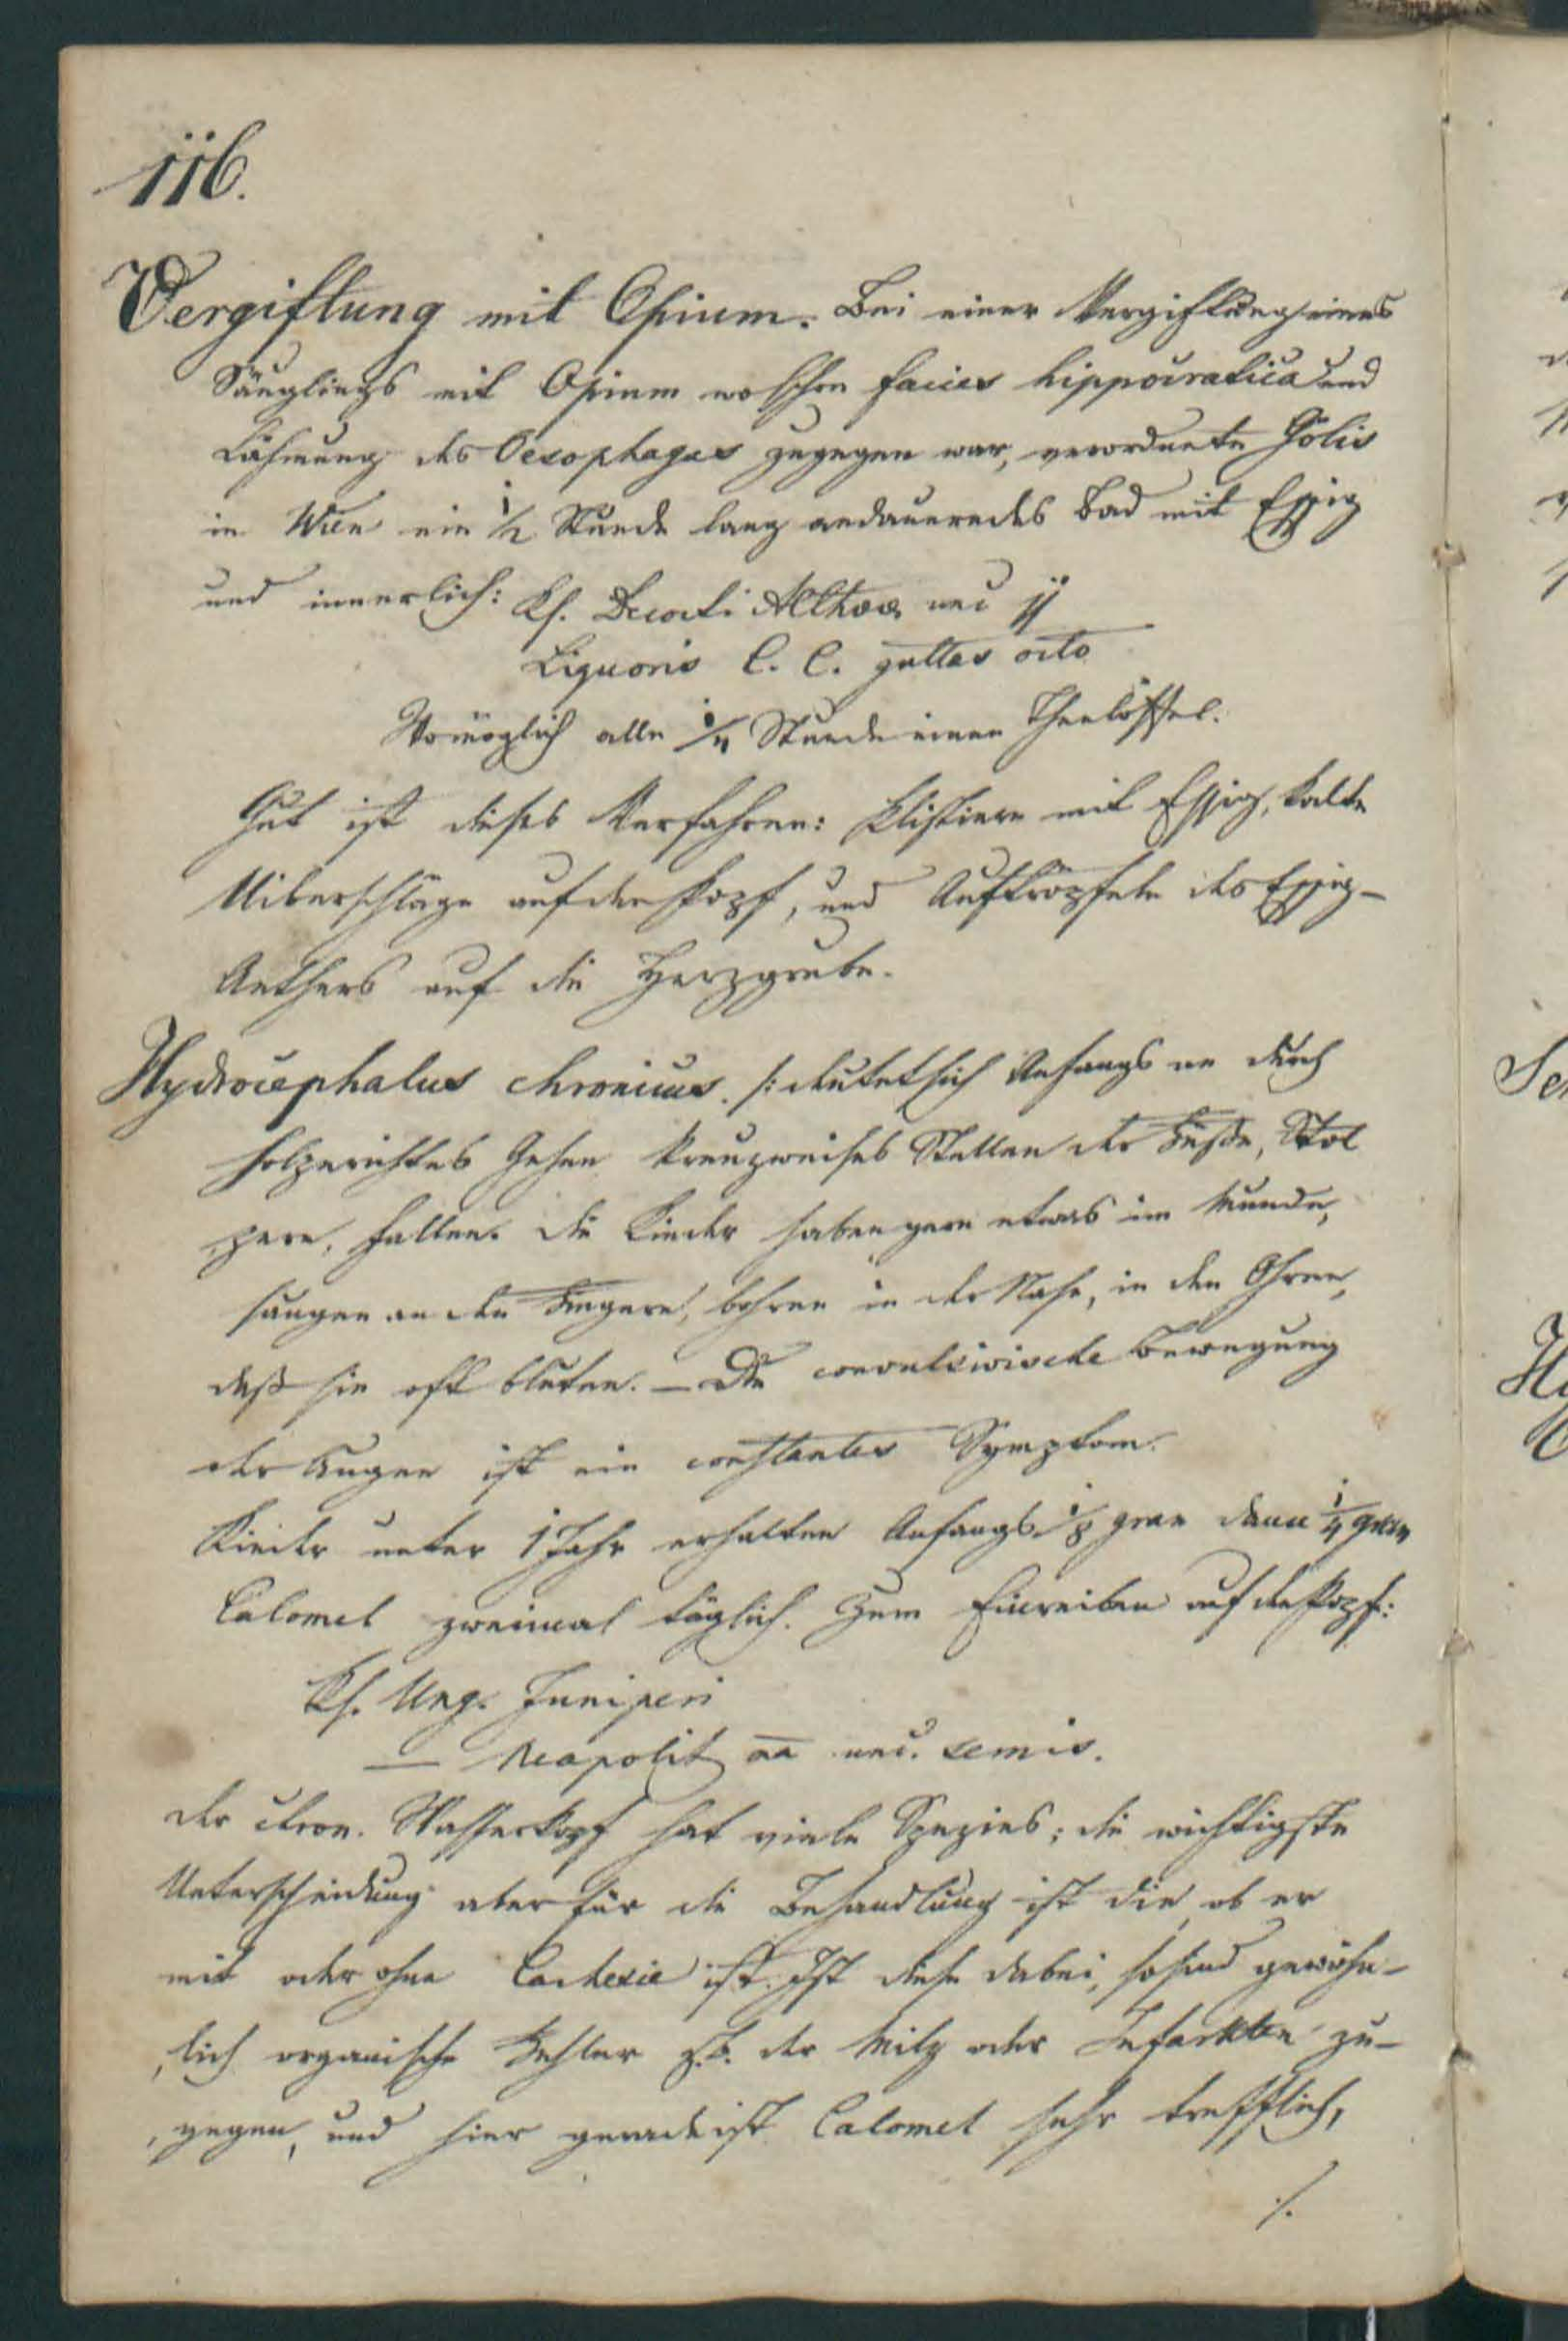 116.
Vergiftung mit Opium. Bei einer Vergiftung eines
Säuglings mit Opium wo schon facies hippocratica und
Lähmung des Oesophagus zugegen war, verordnete Gölis
in Wien ein 1/2 Stunde lang andauerndes Bad mit Essig
und innerlich: Rp. Decocti Althaeae unc jj
Liquoris C. C. guttas octo
Womöglich alle 1/4 Stunde einen Theelöffel.
Gut ist dieses Verfahren: Klistiere mit Essig, kalte
Uiberschläge auf den Kopf, und Auftröpfeln des Essig-
Aethers auf die Herzgrube.
Hydrocephalus chronicus. /: deutet sich Anfangs an durch
holzerichtes Gehen kreuzweises Stellen der Füße, Stol
pern, Fallen. Die Kinder haben gern etwas im Munde,
saugen an den Fingern, bohren in der Nase, in den Ohren,
daß sie oft bluten. — Die convulsivische Bewegung
der Augen ist ein constantes Symptom.
Kinder unter 1 Jahr erhalten Anfangs 1/8 gran dann 1/4 gran
Calomel zweimal täglich. Zum Einreiben auf den Kopf:
Rp. Ung. Juniperi
— Neapolit aa unc. semis.
der chron. Wasserkopf hat viele Spezies; die wichtigste
Unterscheidung aber für die Behandlung ist die, ob er
mit oder ohne Cachexie ist. Ist diese dabei, so sind gewöhn-
lich organische Fehler z.B. der Milz oder Infarkten zu-
gegen, und hier gerade ist Calomel sehr trefflich,
./.